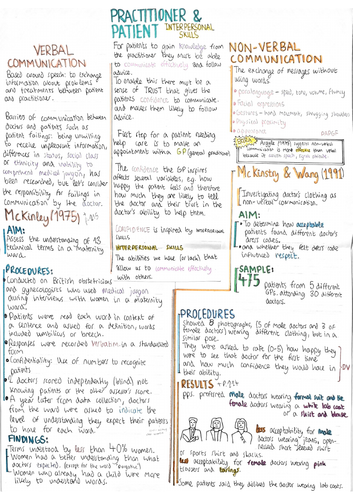 PRACTITIONER &
PATIENT INTERPERSONAL
SKILLS
VERBAL
COMMUNICATION
Based around speech to exchange
information about problems
and treatments between patient
and practitioner.
Barriers of communication between
doctor and patients such as
patient failings: being unwilling
to receive unpleasant information,
differences in social class
or ethnicity and inability to
comprehend medical jargon has
been researched, but let's consider
the responsibility for failings in
communication by the doctor.
McKinley (1975)
AIM:
Assess the understanding of 13
technical terms in a maternity
ward.
PROCEDURES:
Conducted on British obstetricians
and gynecologists who used medical jargon
during interviews with women in a maternity
ward.
Patients were read each word in context of
a sentence and asked for a definition, words
included umbilicus or breech.
Responses were recorded verbatim in a standardised
form
Confidentiality: Use of numbers to recognise
patients
2 doctors scored independently (blind) not
knowing patients or the other assessor's score.
A year later from data collection, doctors
from the ward were asked to indicate the
level of understanding they expect their patients
to have for each word.
FINDINGS:
Terms understood by less than 40% women.
Women had a better understanding than what
doctors expected
Women who already had a child were more
likely to understand words.
For patients to gain knowledge from
the practitioner they must be able
to communicate effectively and follow
advice.
To enable this there must be a
sense of TRUST that give the
patients confidence to communicate
and makes them likely to follow
advice.
First step for a patient needing
help care is to make an
appointment with a GP (general practitioner)
The confidence the GP inspires
affects several variables e.g. how
happy the patient feels and therefore
how much they are likely to tell
the doctor and their trust in the
doctor's ability to help them.
Confidence is inspired by
INTERPERSONAL SKILLS
The abilities we have (or lack) that
allow us to communicate effectively
with others.
NON-VERBAL
COMMUNICATION
The exchange of messages without
using words
paralanguage = speed, tone, volume, fluency
facial expressions
Physical proximity
appearance
Argyle (1975)
McKinstry & Wang (1991)
Investigating doctors clothing as
non-verbal communication.
AIM:
To determine how acceptable
patients found different doctors
dress codes,
and whether they felt dress code
influenced respect.
SAMPLE:
475 patients from 5 different
GPs, attending 30 different
doctors.
PROCEDURES
Showed 8 photographs (5 of male doctors and 3 of
female doctors) wearing different clothing, but in a
similar pose.
They were asked to rate (0-5) how happy they
were to see that doctor for the first time
and how much confidence they would have in
their ability
RESULTS
pps. preferred male doctors wearing formal suit and tie
female doctors wearing a white lab coat
or a skirt and blouse.
less acceptability for male
doctors wearing jeans, open-
necked short sleeved shirt
or sports shirt and slacks.
less acceptability for female doctors wearing pink
trousers and earrings.
Some patients said they disliked the doctor wearing lab coats.